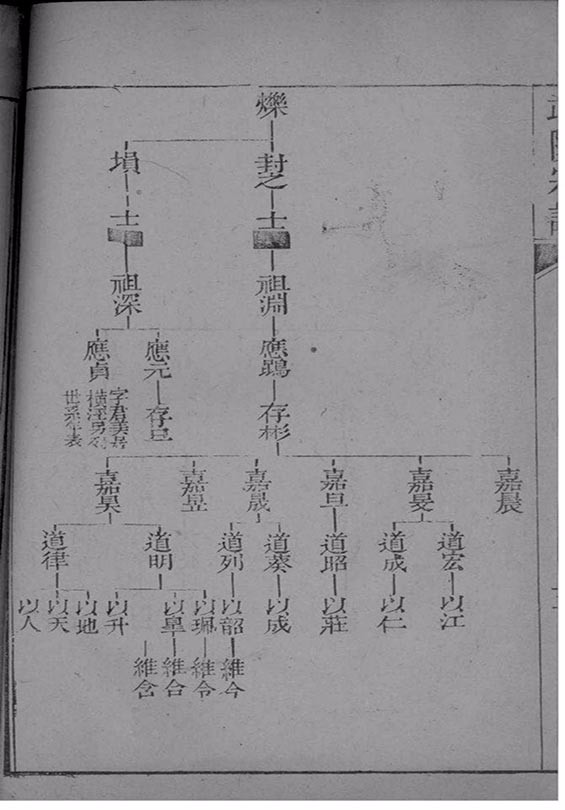 爍
封之
塤
士
士
祖淵
祖深
應鶚
應元
應貞
存彬
字君美居
世系年表
嘉晨
嘉旻
嘉旦
嘉晟
嘉昱
嘉昊
道宏
道成
道昭
道葵
道列
道明
道律
以江
以仁
以莊
以成
以韶
以珮
以皐
以升
以地
以天
以人
維今
維令
維合
維含